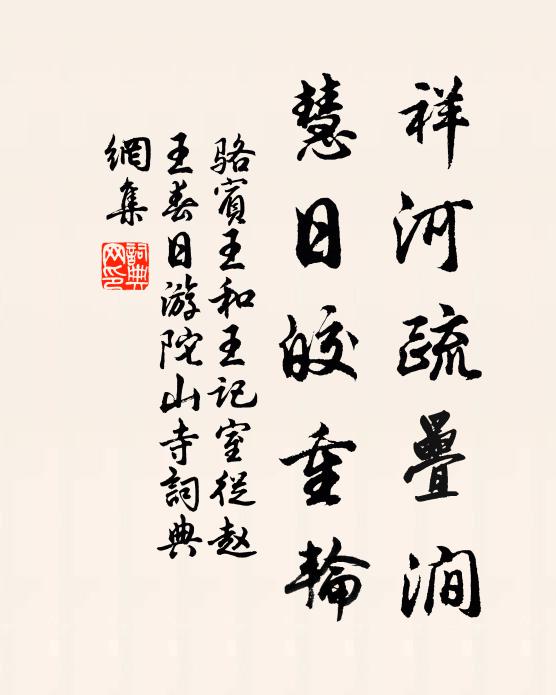 祥河疏疊澗
慧日皎重輪
骆賓王和王记室從赵
王春日游陀山寺詞典
網集
詞典
网印